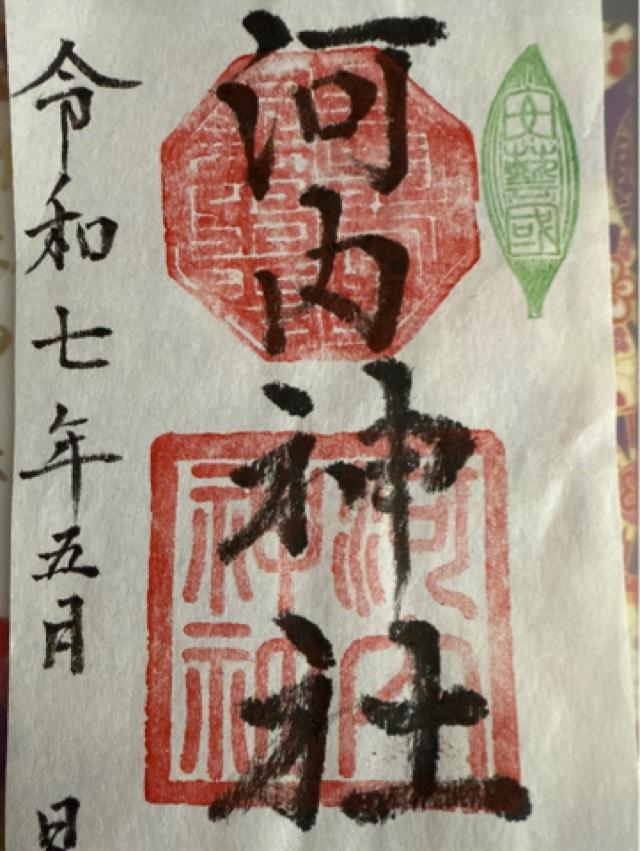 安藝國
河内神社
河内
神社
令和七年五月 日